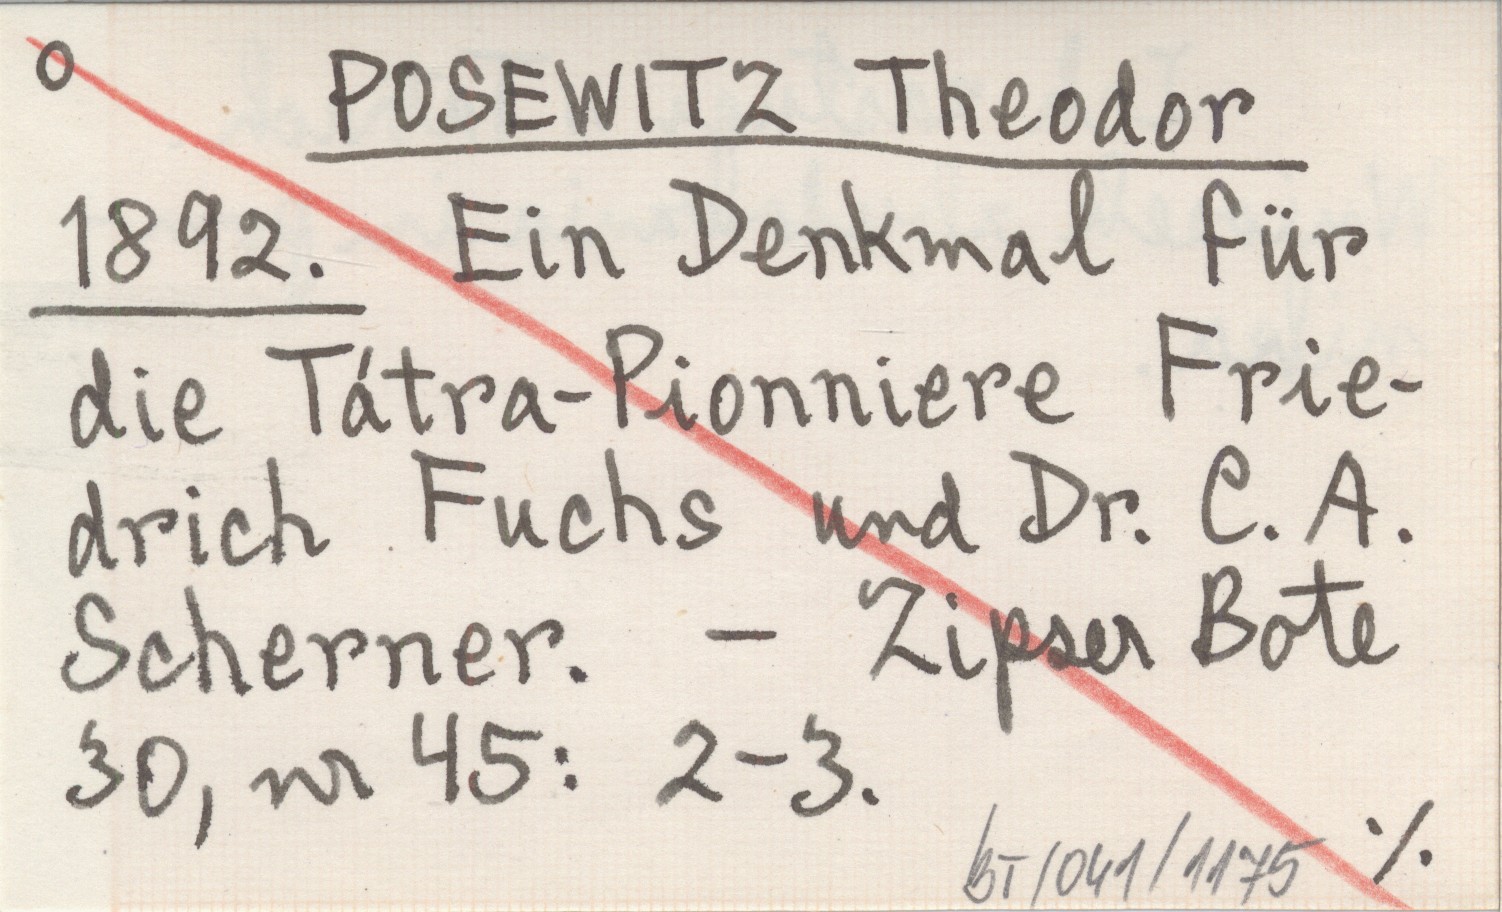 o POSEWITZ Theodor
1892. Ein Denkmal für
die Tátra-Pionniere Frie-
drich Fuchs und Dr. C. A.
Scherner. – Zipser Bote
30, nr 45: 2-3.
BT/041/1175 ·/.